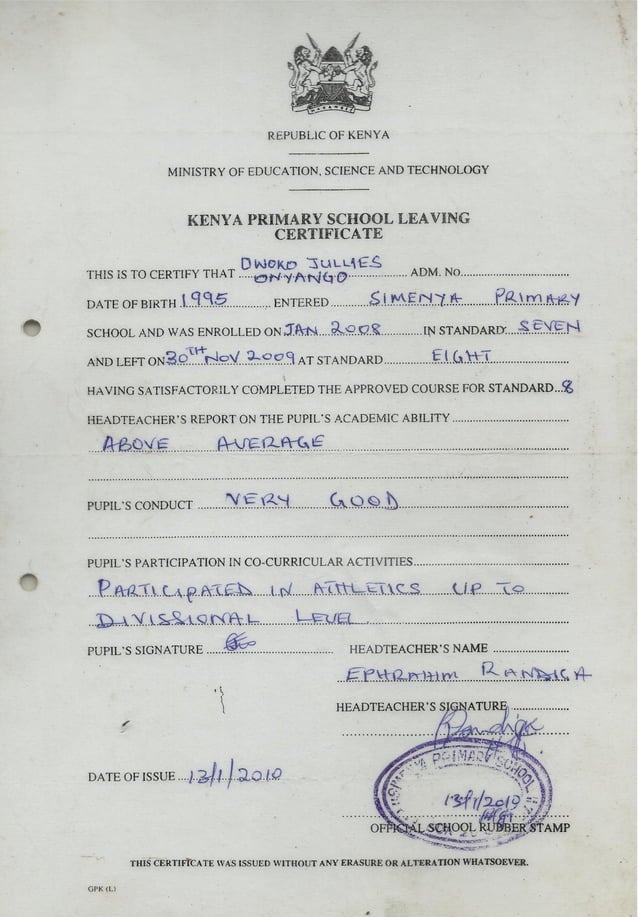 HARAMBEE
REPUBLIC OF KENYA
MINISTRY OF EDUCATION, SCIENCE AND TECHNOLOGY
KENYA PRIMARY SCHOOL LEAVING
CERTIFICATE
THIS IS TO CERTIFY THAT OWOKO JULLIES ONYANGO ADM. No.
DATE OF BIRTH 1995 ENTERED SIMENYA PRIMARY
SCHOOL AND WAS ENROLLED ON JAN 2008 IN STANDARD SEVEN
AND LEFT ON 30TH NOV 2009 AT STANDARD EIGHT
HAVING SATISFACTORILY COMPLETED THE APPROVED COURSE FOR STANDARD 8
HEADTEACHER'S REPORT ON THE PUPIL'S ACADEMIC ABILITY
ABOVE AVERAGE
PUPIL'S CONDUCT VERY GOOD
PUPIL'S PARTICIPATION IN CO-CURRICULAR ACTIVITIES
PARTICIPATED IN ATHLETICS UP TO
DIVISSIONAL LEVEL
PUPIL'S SIGNATURE HEADTEACHER'S NAME
EPHRAHIM RANDIGA
HEADTEACHER'S SIGNATURE
DATE OF ISSUE 13/1/2010
SIMENYA PRIMARY SCHOOL
13/1/2010
OFFICIAL SCHOOL RUBBER STAMP
THIS CERTIFICATE WAS ISSUED WITHOUT ANY ERASURE OR ALTERATION WHATSOEVER.
GPK (L)